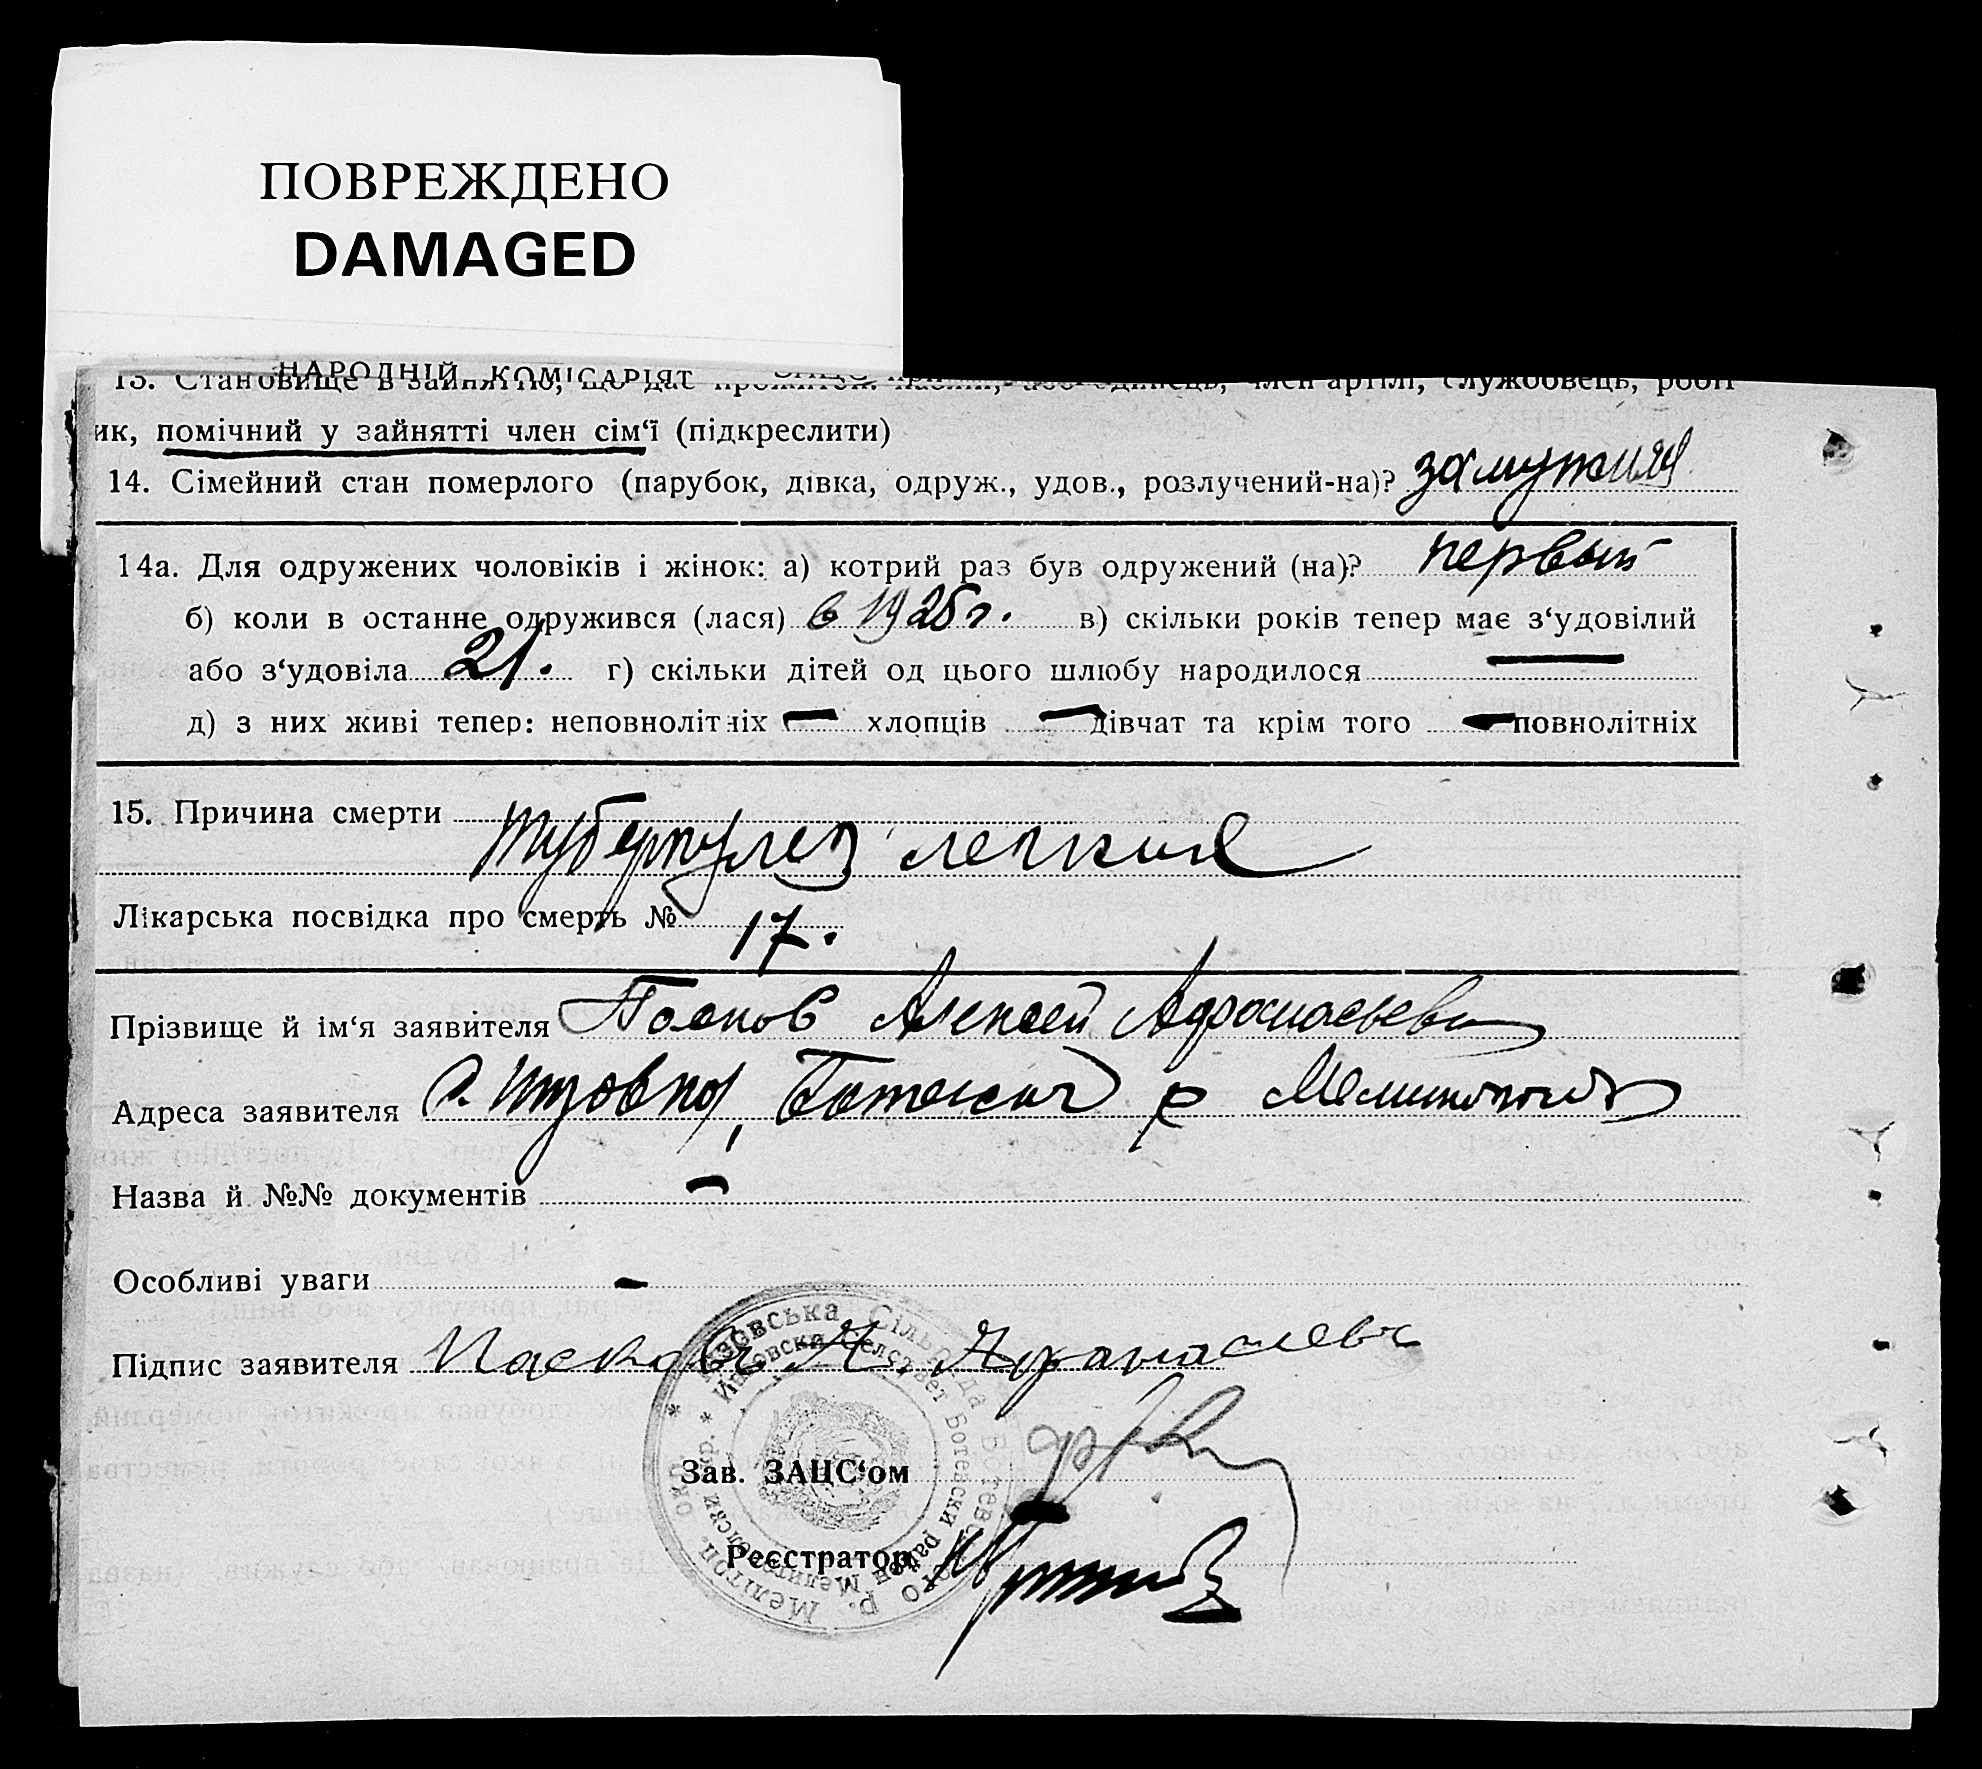 ПОВРЕЖДЕНО
DAMAGED
НАРОДНІЙ КОМІСАРІЯТ
13. Становище в зайнятті, що дає член артілі, службовець, робіт
ик, помічний у зайнятті член сім‘ї (підкреслити)
14. Сімейний стан померлого (парубок, дівка, одруж., удов., розлучений-на)? замужняя
14а. Для одружених чоловіків і жінок: а) котрий раз був одружений (на)? первый
б) коли в останне одружився (лася) в 1925 г. в) скільки років тепер має з‘удовілий
або з‘удовіла 21. г) скільки дітей од цього шлюбу народилося —
д) з них живі тепер: неповнолітніх — хлопців — дівчат та крім того — повнолітніх
15. Причина смерти
туберкулез легких
Лікарська посвідка про смерть № 17.
Прізвище й ім‘я заявителя Алексей Афанасьевич
Адреса заявителя с. р
Назва й №№ документів —
Особливі уваги —
Підпис заявителя
Зав. ЗАЦС‘ом
Реєстратор